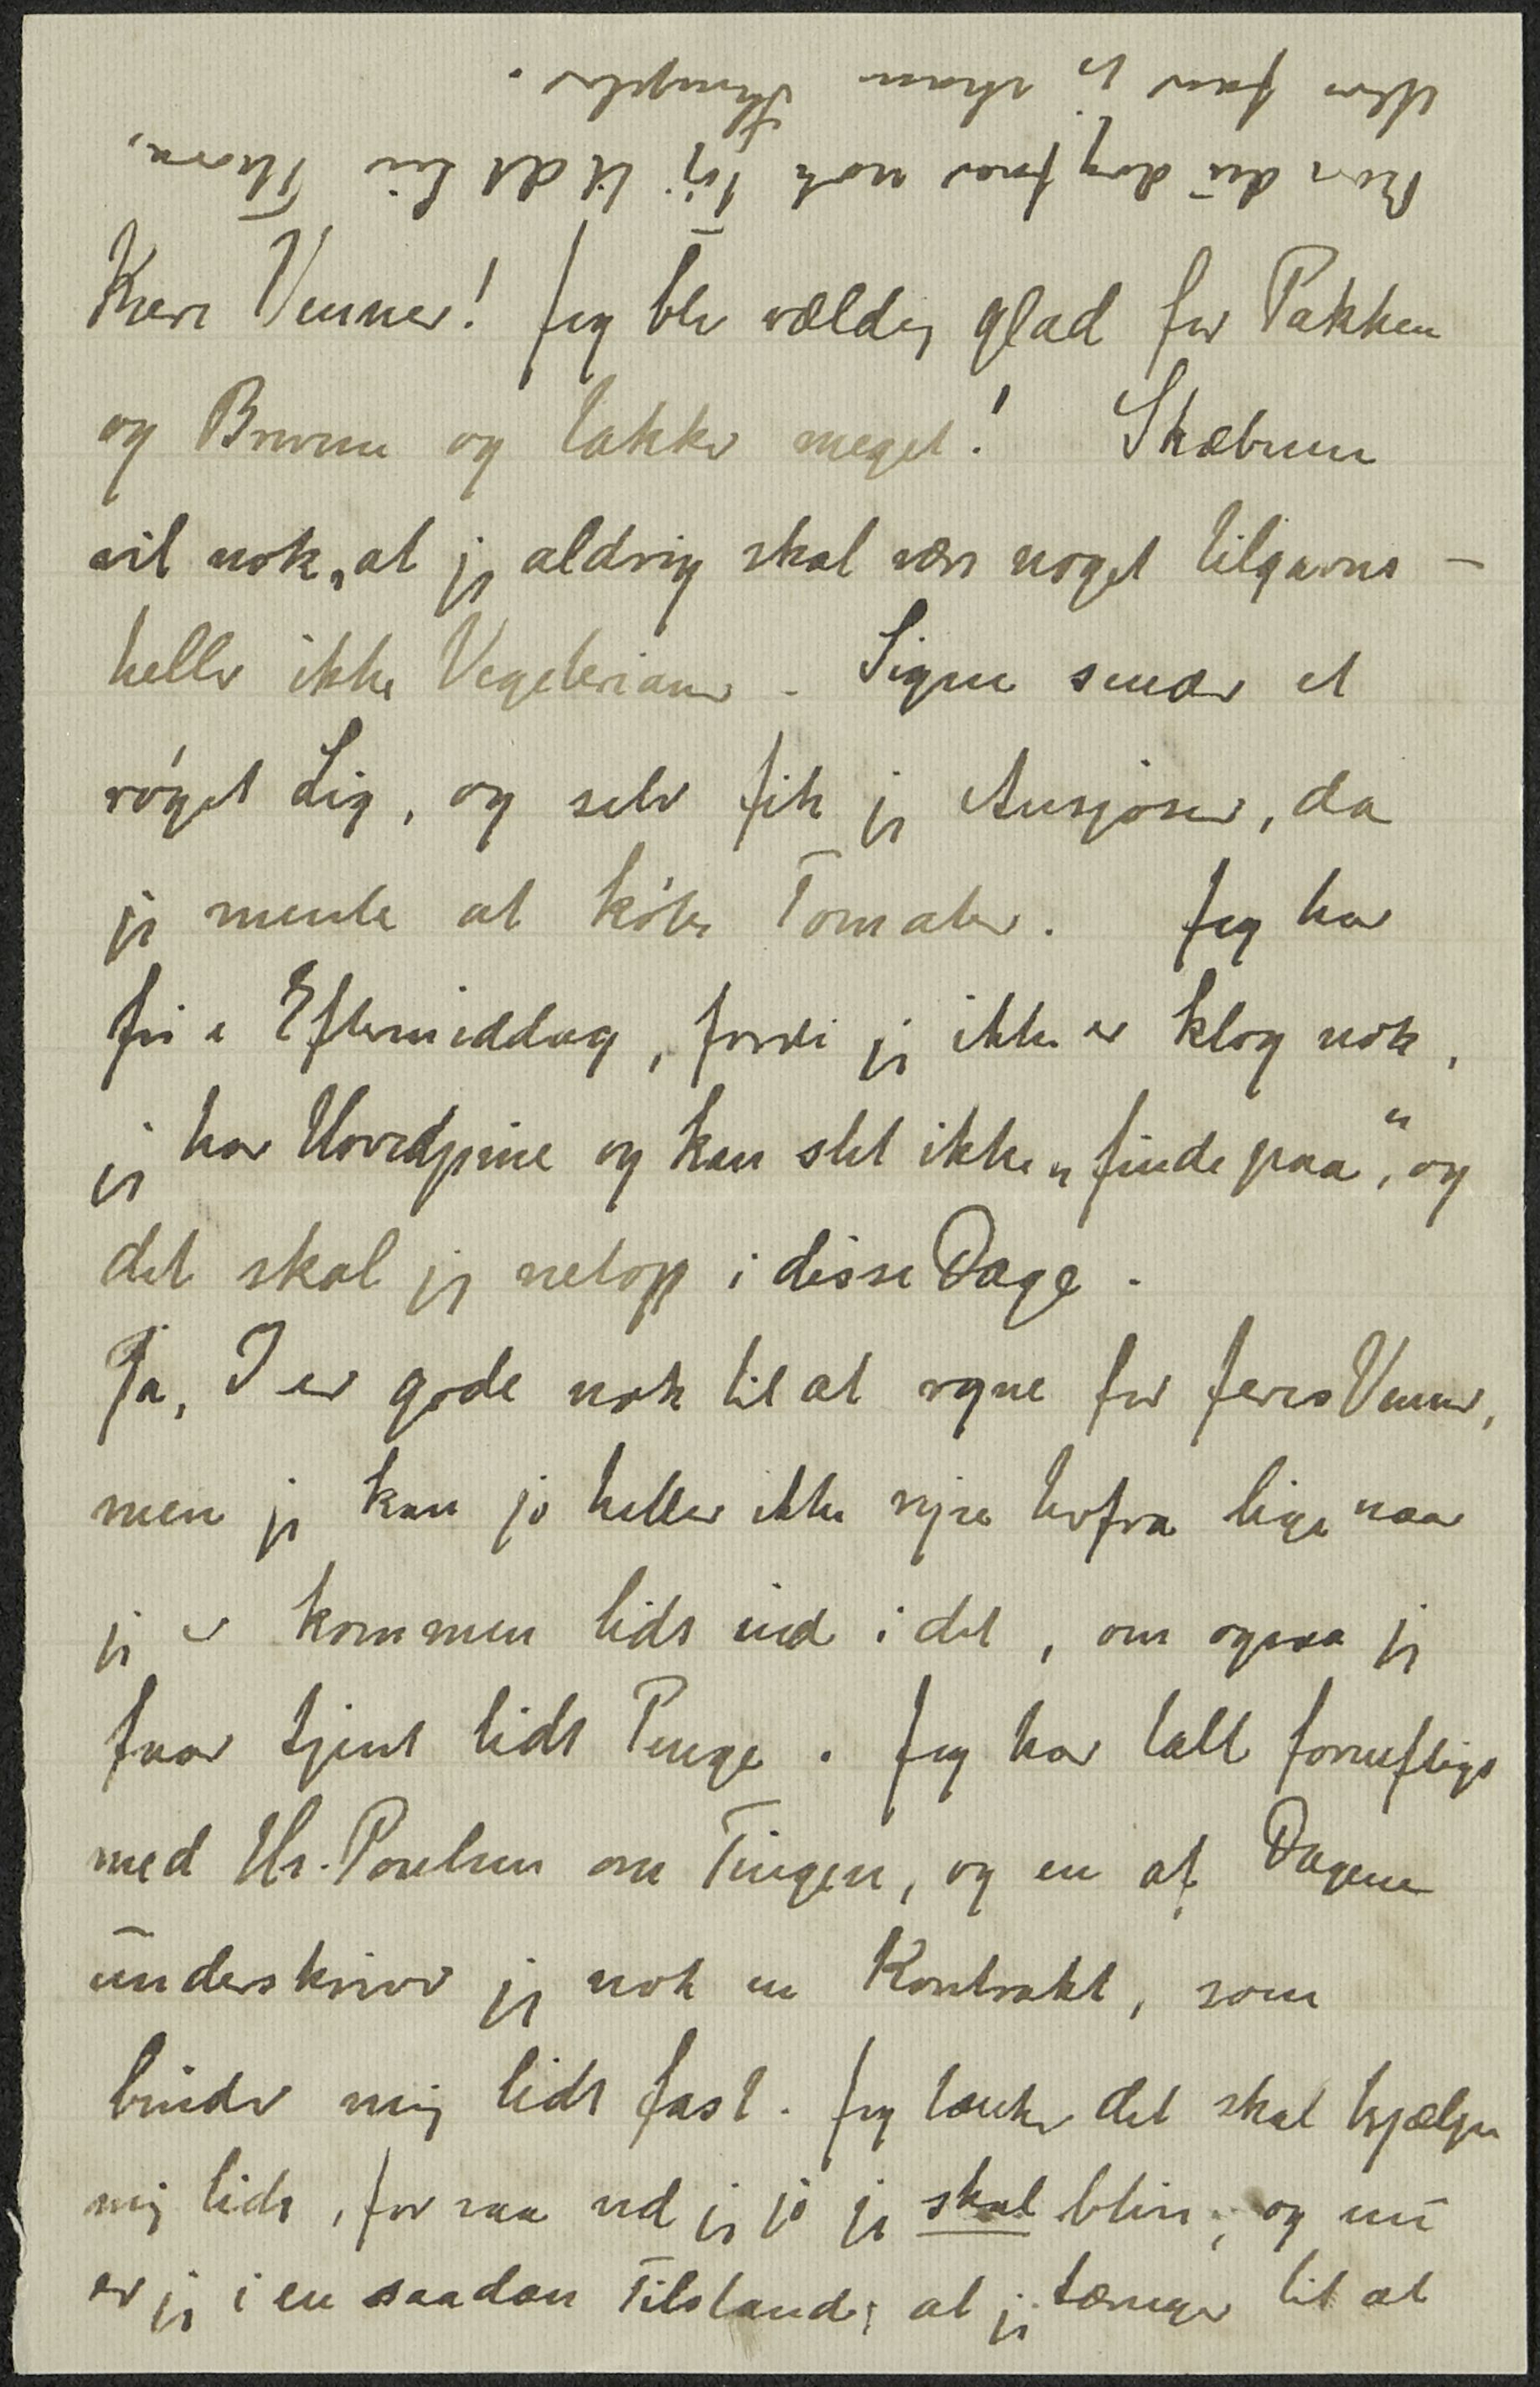 Kære Venner! Jeg blev vældig glad for Pakken
og Brevene og takker meget! Skæbnen
vil nok, at jeg aldrig skal være noget tilgavns –
heller ikke Vegetarianer – Signe sender et
røget Lig, og selv fik jeg Ansjoser, da
jeg mente at købe Tomater. Jeg har
fri i Eftermiddag, fordi jeg ikke er klog nok,
jeg har Hovedpine og kan slet ikke „finde paa“, og
det skal jeg netop i disse Dage.
Ja, I er gode nok til at sørge for Jeres Venner,
men jeg kan jo heller ikke rejse herfra lige naar
jeg er kommen lidt ind i det, om ogsaa jeg
faar tjent lidt Penge. Jeg har talt fornuftigt
med Hr. Poulsen om Tingen, og en af Dagene
underskriver jeg nok en Kontrakt, som
binder mig lidt fast. Jeg tænker det skal hjælpe
mig lidt, for saa ved jeg jo jeg skal blive, og nu
er jeg i en saadan Tilstand, at jeg trænger til at
Bare du dog faar nok Tøj til det lü Thora,
ellers faar jeg skam Skrupler.